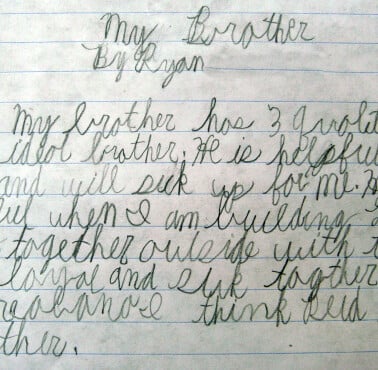 My Brother
By Ryan
My brother has 3 qualit
ideol brother. He is helpful
and will suck up for me. H
ful when I am building a
together outside with t
loyal and suk togther
think
ther.